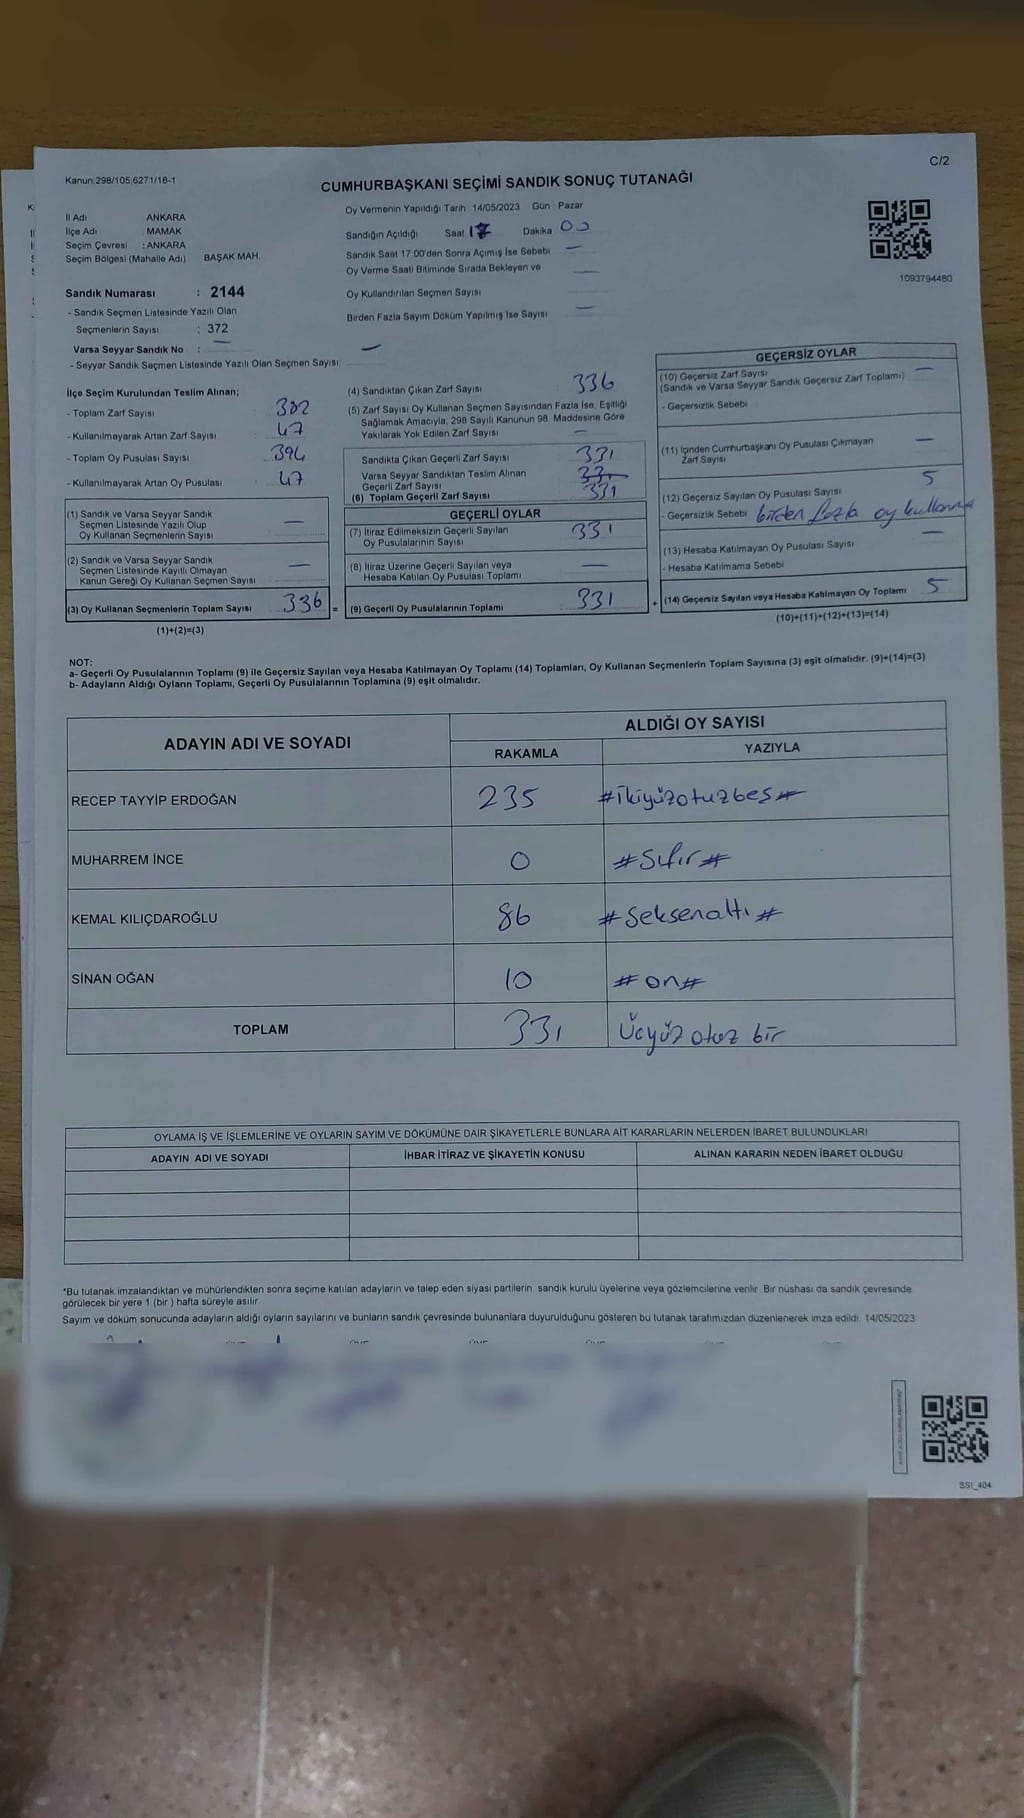 C/2
Kanun:298/105,6271/18-1
CUMHURBAŞKANI SEÇİMİ SANDIK SONUÇ TUTANAĞI
İl Adı ANKARA
İlçe Adı MAMAK
Seçim Çevresi : ANKARA
Seçim Bölgesi (Mahalle Adı) BAŞAK MAH.
Sandık Numarası : 2144
- Sandık Seçmen Listesinde Yazılı Olan
Seçmenlerin Sayısı : 372
Varsa Seyyar Sandık No : —
- Seyyar Sandık Seçmen Listesinde Yazılı Olan Seçmen Sayısı: —
Oy Vermenin Yapıldığı Tarih : 14/05/2023 Gün : Pazar
Sandığın Açıldığı Saat 17 Dakika 00
Sandık Saat 17:00'den Sonra Açımış İse Sebebi —
Oy Verme Saati Bitiminde Sırada Bekleyen ve —
Oy Kullandırılan Seçmen Sayısı
Birden Fazla Sayım Döküm Yapılmış İse Sayısı —
1093794480
İlçe Seçim Kurulundan Teslim Alınan;
- Toplam Zarf Sayısı : 382
- Kullanılmayarak Artan Zarf Sayısı : 47
- Toplam Oy Pusulası Sayısı : 394
- Kullanılmayarak Artan Oy Pusulası : 47
(1) Sandık ve Varsa Seyyar Sandık
Seçmen Listesinde Yazılı Olup
Oy Kullanan Seçmenlerin Sayısı —
(2) Sandık ve Varsa Seyyar Sandık
Seçmen Listesinde Kayıtlı Olmayan
Kanun Gereği Oy Kullanan Seçmen Sayısı —
(3) Oy Kullanan Seçmenlerin Toplam Sayısı 336 =
(1)+(2)=(3)
(4) Sandıktan Çıkan Zarf Sayısı 336
(5) Zarf Sayısı Oy Kullanan Seçmen Sayısından Fazla İse, Eşitliği
Sağlamak Amacıyla, 298 Sayılı Kanunun 98. Maddesine Göre
Yakılarak Yok Edilen Zarf Sayısı —
Sandıkta Çıkan Geçerli Zarf Sayısı 331
Varsa Seyyar Sandıktan Teslim Alınan
Geçerli Zarf Sayısı
(6) Toplam Geçerli Zarf Sayısı 331
GEÇERLİ OYLAR
(7) İtiraz Edilmeksizin Geçerli Sayılan
Oy Pusulalarının Sayısı 331
(8) İtiraz Üzerine Geçerli Sayılan veya
Hesaba Katılan Oy Pusulası Toplamı —
(9) Geçerli Oy Pusulalarının Toplamı 331 +
GEÇERSİZ OYLAR
(10) Geçersiz Zarf Sayısı —
(Sandık ve Varsa Seyyar Sandık Geçersiz Zarf Toplamı)
- Geçersizlik Sebebi :
(11) İçinden Cumhurbaşkanı Oy Pusulası Çıkmayan
Zarf Sayısı —
(12) Geçersiz Sayılan Oy Pusulası Sayısı 5
- Geçersizlik Sebebi birden fazla oy kullanma
(13) Hesaba Katılmayan Oy Pusulası Sayısı —
- Hesaba Katılmama Sebebi
(14) Geçersiz Sayılan veya Hesaba Katılmayan Oy Toplamı 5
(10)+(11)+(12)+(13)=(14)
NOT:
a- Geçerli Oy Pusulalarının Toplamı (9) ile Geçersiz Sayılan veya Hesaba Katılmayan Oy Toplamı (14) Toplamları, Oy Kullanan Seçmenlerin Toplam Sayısına (3) eşit olmalıdır. (9)+(14)=(3)
b- Adayların Aldığı Oyların Toplamı, Geçerli Oy Pusulalarının Toplamına (9) eşit olmalıdır.
ADAYIN ADI VE SOYADI
ALDIĞI OY SAYISI
RAKAMLA YAZIYLA
RECEP TAYYİP ERDOĞAN 235 #İkiyüzotuzbeş#
MUHARREM İNCE 0 #Sıfır#
KEMAL KILIÇDAROĞLU 86 #Seksenaltı#
SİNAN OĞAN 10 #on#
TOPLAM 331 Üçyüz otuz bir
OYLAMA İŞ VE İŞLEMLERİNE VE OYLARIN SAYIM VE DÖKÜMÜNE DAİR ŞİKAYETLERLE BUNLARA AİT KARARLARIN NELERDEN İBARET BULUNDUKLARI
ADAYIN ADI VE SOYADI İHBAR İTİRAZ VE ŞİKAYETİN KONUSU ALINAN KARARIN NEDEN İBARET OLDUĞU
*Bu tutanak imzalandıktan ve mühürlendikten sonra seçime katılan adayların ve talep eden siyasi partilerin sandık kurulu üyelerine veya gözlemcilerine verilir. Bir nüshası da sandık çevresinde
görülecek bir yere 1 (bir ) hafta süreyle asılır.
Sayım ve döküm sonucunda adayların aldığı oyların sayılarını ve bunların sandık çevresinde bulunanlara duyurulduğunu gösteren bu tutanak tarafımızdan düzenlenerek imza edildi. 14/05/2023
SSI_404